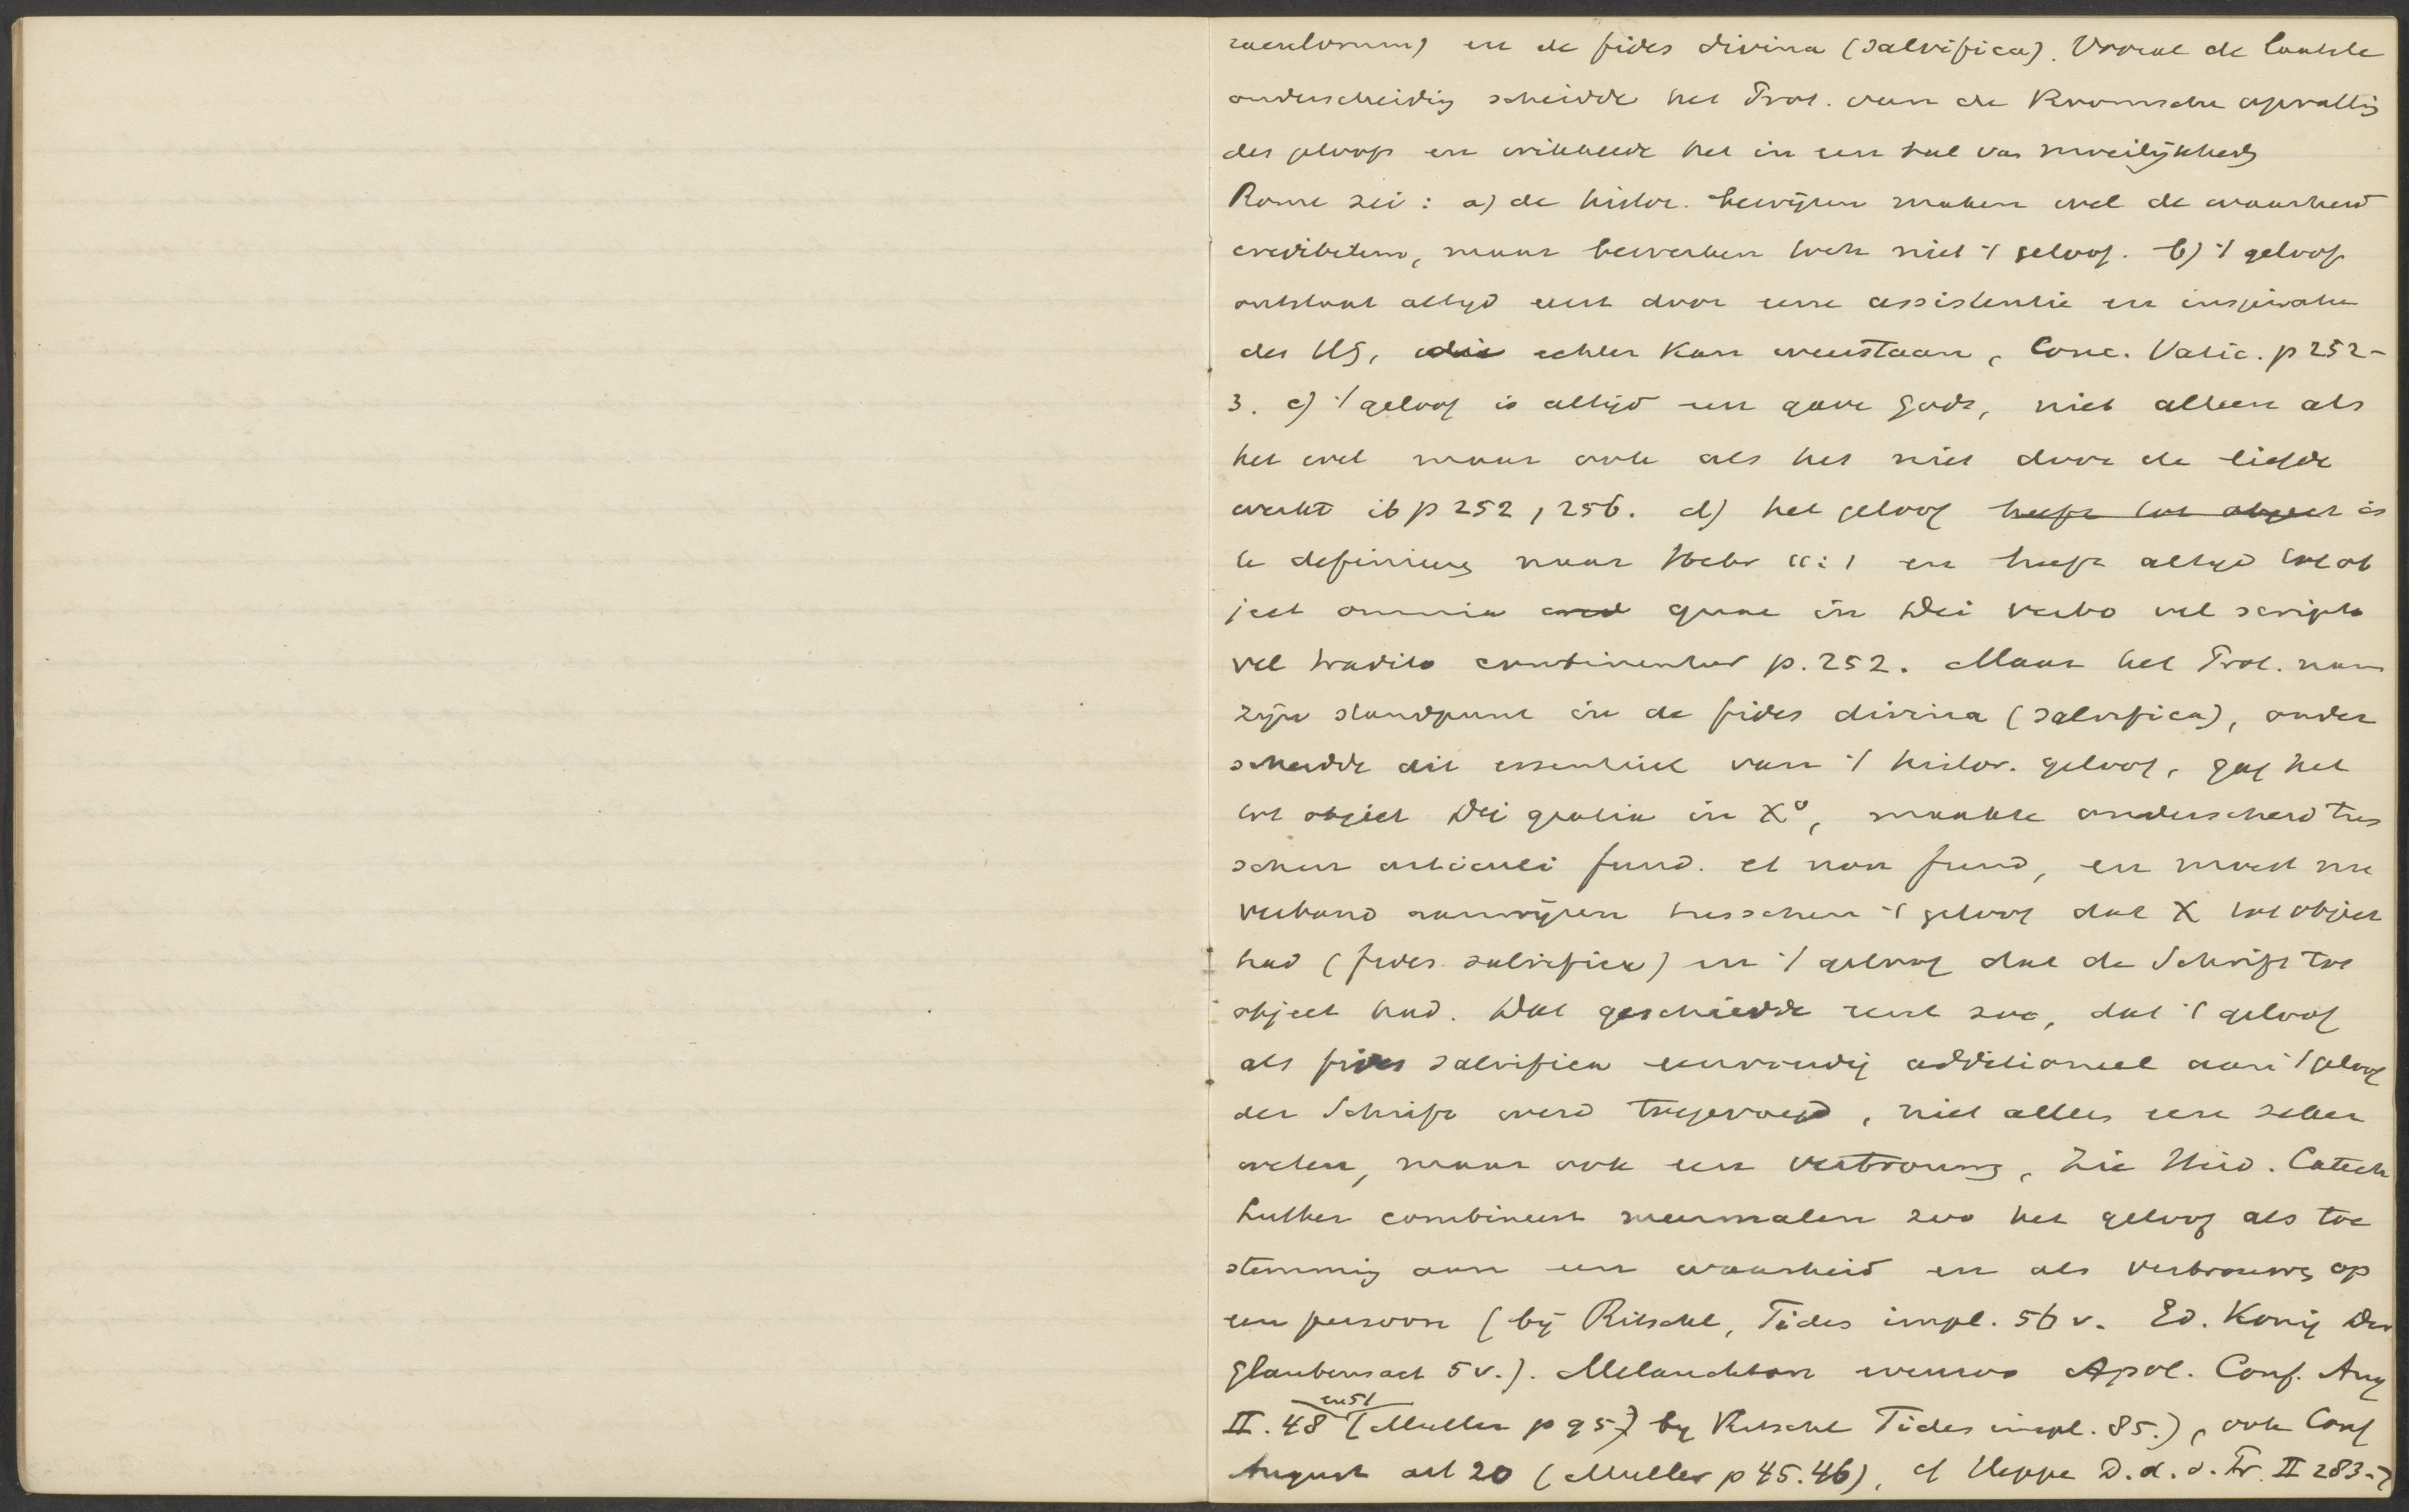 raculorum) en de fides divina (salvifica). Vooral de laatste
onderscheidig scheidde het Prot. van de Roomsche opvattig
des geloofs en wikkelde het in een tal van moeilijkhedg
Rome zei: a) de histor. bewijzen maken wel de waarheid
credibelem, maar bewerken toch niet 't geloof. b) 't geloof
ontstaat altijd eerst door eene assistentie en inspiratie
des HG, die echter kan weerstaan, Conc. Vatic. p 252-
3. c) 't geloof is altijd een gave Gods, niet alleen als
het wel maar ook als het niet door de liefde
werkt ib p 252, 256. d) het geloof heeft tot object is
te definieeren naar Hebr 11:1 en heeft altijd tot ob
ject omnia cred quae in Dei verbo vel scripto
vel tradito continentur p. 252. Maar het Prot. nam
zijn standpunt in de fides divina (salvifica), onder
scheidde dit essentieel van 't histor. geloof, gaf het
tot object Dei gratia in Xo, maakte onderscheid tus
schen articuli fund. et non fund, en moest nu
verband aanwijzen tusschen 't geloof dat X tot object
had (fides salvifica) en 't geloof dat de Schrift tot
object had. Dat geschiedde eerst zoo, dat 't geloof
als fides salvifica eenvoudig additioneel aan 't geloof
der Schrift werd toegevoegd, niet alles een zeker
weten, maar ook een vertrouwg, zie Heid. Catech
Luther combineert meermalen zoo het geloof als toe
stemmig aan een waarheid en als vertrouwg op
een persoon (bij Ritschl, Fides impl. 56 v. Ed. Konig Der
Glaubensact 5 v.). Melanchton evenzoo Apol. Conf. Aug
II. 48 en 51 (Muller p 95) by Ritschl Fides impl. 85.), ook Conf
August art 20 (Muller p 45.46), cf Heppe D. d. d. Pr. II 283-7